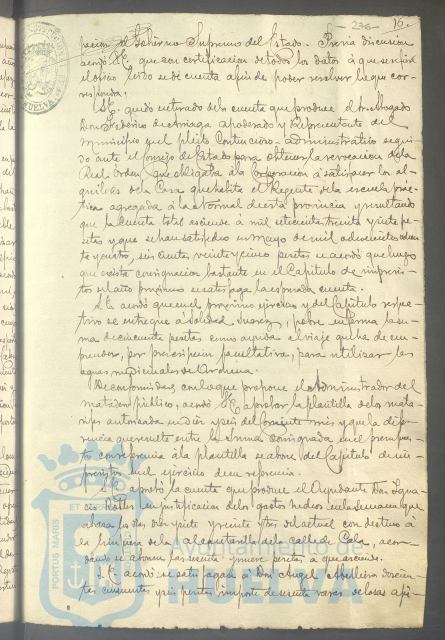 236 16.
pecion el Gobierno Supremo del Estado. Previa discusion
acordó S.E. que con certificacion de todos los datos á que se refiere
el oficio leido se dé cuenta á fin de poder resolver lo que cor-
responda.
S.E. quedó enterado de la cuenta que produce el Sr. Abogado
Don Federico de Arriaga apoderado y Representante del
Municipio en el pleito Contencioso-administrativo segui-
do ante el Consejo de Estado para obtener la revocacion de la
Real órden que obligaba á la Corporacion á satisfacer los al-
quileres de la Casa que habita el Regente de la escuela prác-
tica agregada á la Normal de esta provincia y resultando
que la cuenta total asciende á mil setecientas treinta y siete pe-
setas y que se han satisfecho en Mayo de mil ochocientos ochen-
ta y cuatro, seiscientas veinte y cinco pesetas se acordó que luego
que exista consignacion bastante en el Capítulo de imprevis-
tos del año próximo se satisfaga la expresada cuenta.
S.E. acordó que en el próximo ejercicio y del Capítulo respec-
tivo se entregue á Soledad Suarez, pobre enferma la su-
ma de cincuenta pesetas como ayuda el viaje que ha de em-
prender, por prescripcion facultativa, para utilizar las
aguas medicinales de Archena.
De conformidad con lo que propone el Administrador del
matadero público, acordó S.E. aprobar la plantilla de los mata-
rifes autorizada en diez y seis del corriente mes y que la dife-
rencia que resulte entre la suma consignada en el presupues-
to con referencia á la plantilla se abone del Capítulo de im-
previstos en el ejercicio de su referencia.
S.E. aprobó la cuenta que produce el Ayudante Don Igna-
cio en justificacion de los gastos hechos en la semana que
abraza los dias diez y siete y veinte y tres del actual con destino á
la limpieza de la alcantarilla de la calle de Cala, acor-
dando se abonen las sesenta y nueve pesetas á que asciende.
S.E. acordó se satisfagan á Don Angel Abelleira doscien-
tas cincuenta y seis pesetas importe de sesenta varas de losas api-
Ayuntamiento de
HUELVA
PORTUS MARIS ET
HUELVA